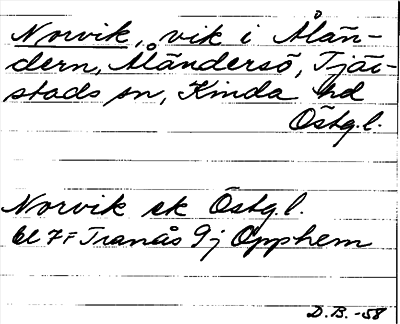 Norvik, vik i Ålän-
dern, Åländersö, Tjär-
stads sn, Kinda hd
Östg.l.
Norvik ek Östg.l.
bl 7F Tranås 9j Opphem
D.B. -58